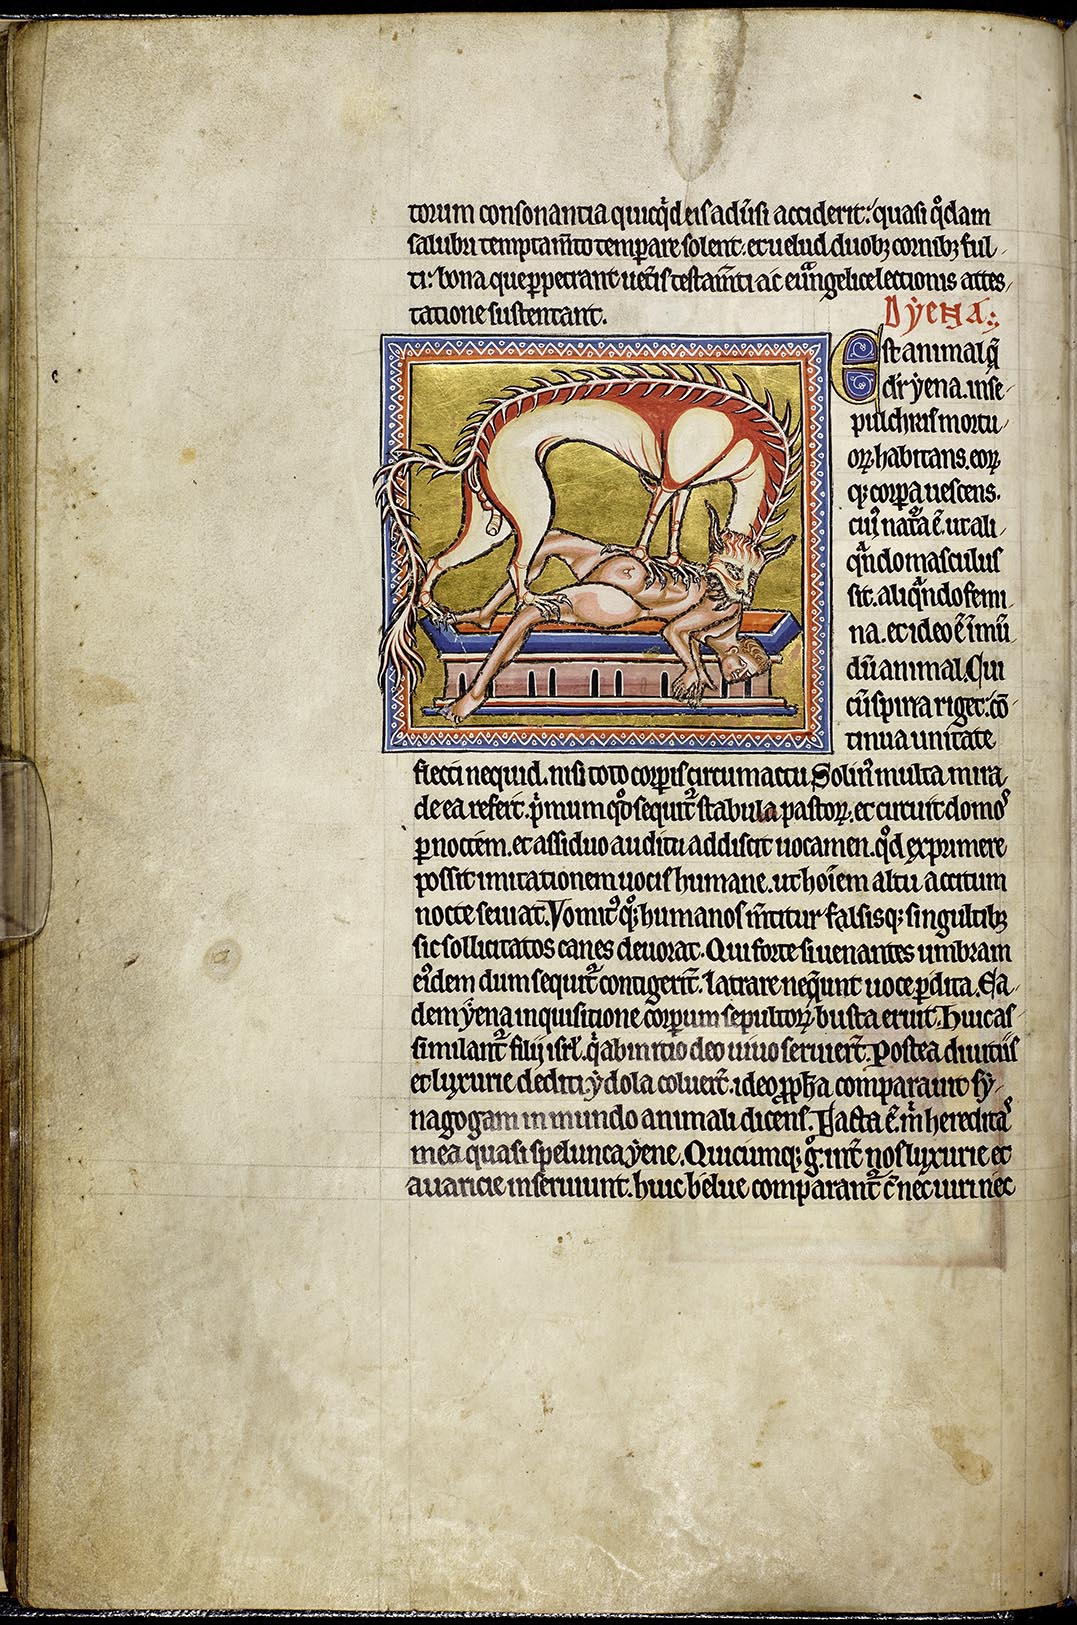 torum consonantia quicq̇d eis adũsi acciderit: quasi qͦdam
salubri temptam̃to temperare solent. et uelud duobꝫ cornibꝫ ful
ti: bona que ꝑpetrant uet̃is testam̃ti ac euangelice lectionis attes
tatione sustentant.
Dẏena
Est animal q̃
dr̃ ẏena. in se
pulchris mortu
oꝝ habitans. eoꝝ
qꝫ corpa uescens.
cuiꝰ nat̃a ẽ. ut ali
qͣndo masculus
sit. aliqͣndo femi
na. et ideo ẽ ĩmũ
dũ animal. Cui
cũ spina riget: cõ
tinua unitate
flecti nequid. nisi toto corpis circumactu Soliniꝰ multa mira
de ea refert. p̃mum qͦd sequit᷑ stabula pastoꝝ. et circuit domoꝰ
ꝑ noctem. et assiduo auditu addiscit uocamen. qͦd exprimere
possit imitationem uocis humane. ut hoĩem altu accitum
nocte seuiat. Vomitꝰ qͦꝫ humanos m̃titur falsisqꝫ singultibꝫ
sic sollicitatos canes deuorat. Qui forte si uenantes umbram
eiꝰdem dum sequit᷑ contigerit᷑. latrare neq̃unt uoce ꝑdita. Ea
dem ẏena inquisitione corpum sepultoꝝ busta eruit. Huic as
similant᷑ filij isrł. q̃ ab initio deo uiuo seruiert᷑. Postea diuitiis
et luxurie dediti ẏdola coluert᷑. ideo ꝓpħa comparauit sẏ
nagogam inmundo animali dicens. Facta ẽ m̃ hereditaꝰ
mea quasi spelunca ẏene. Quicumqꝫ gͦ int᷑ nos luxurie et
auaricie inseruiunt. huic belue comparant᷑ c̃ nec uiri nec